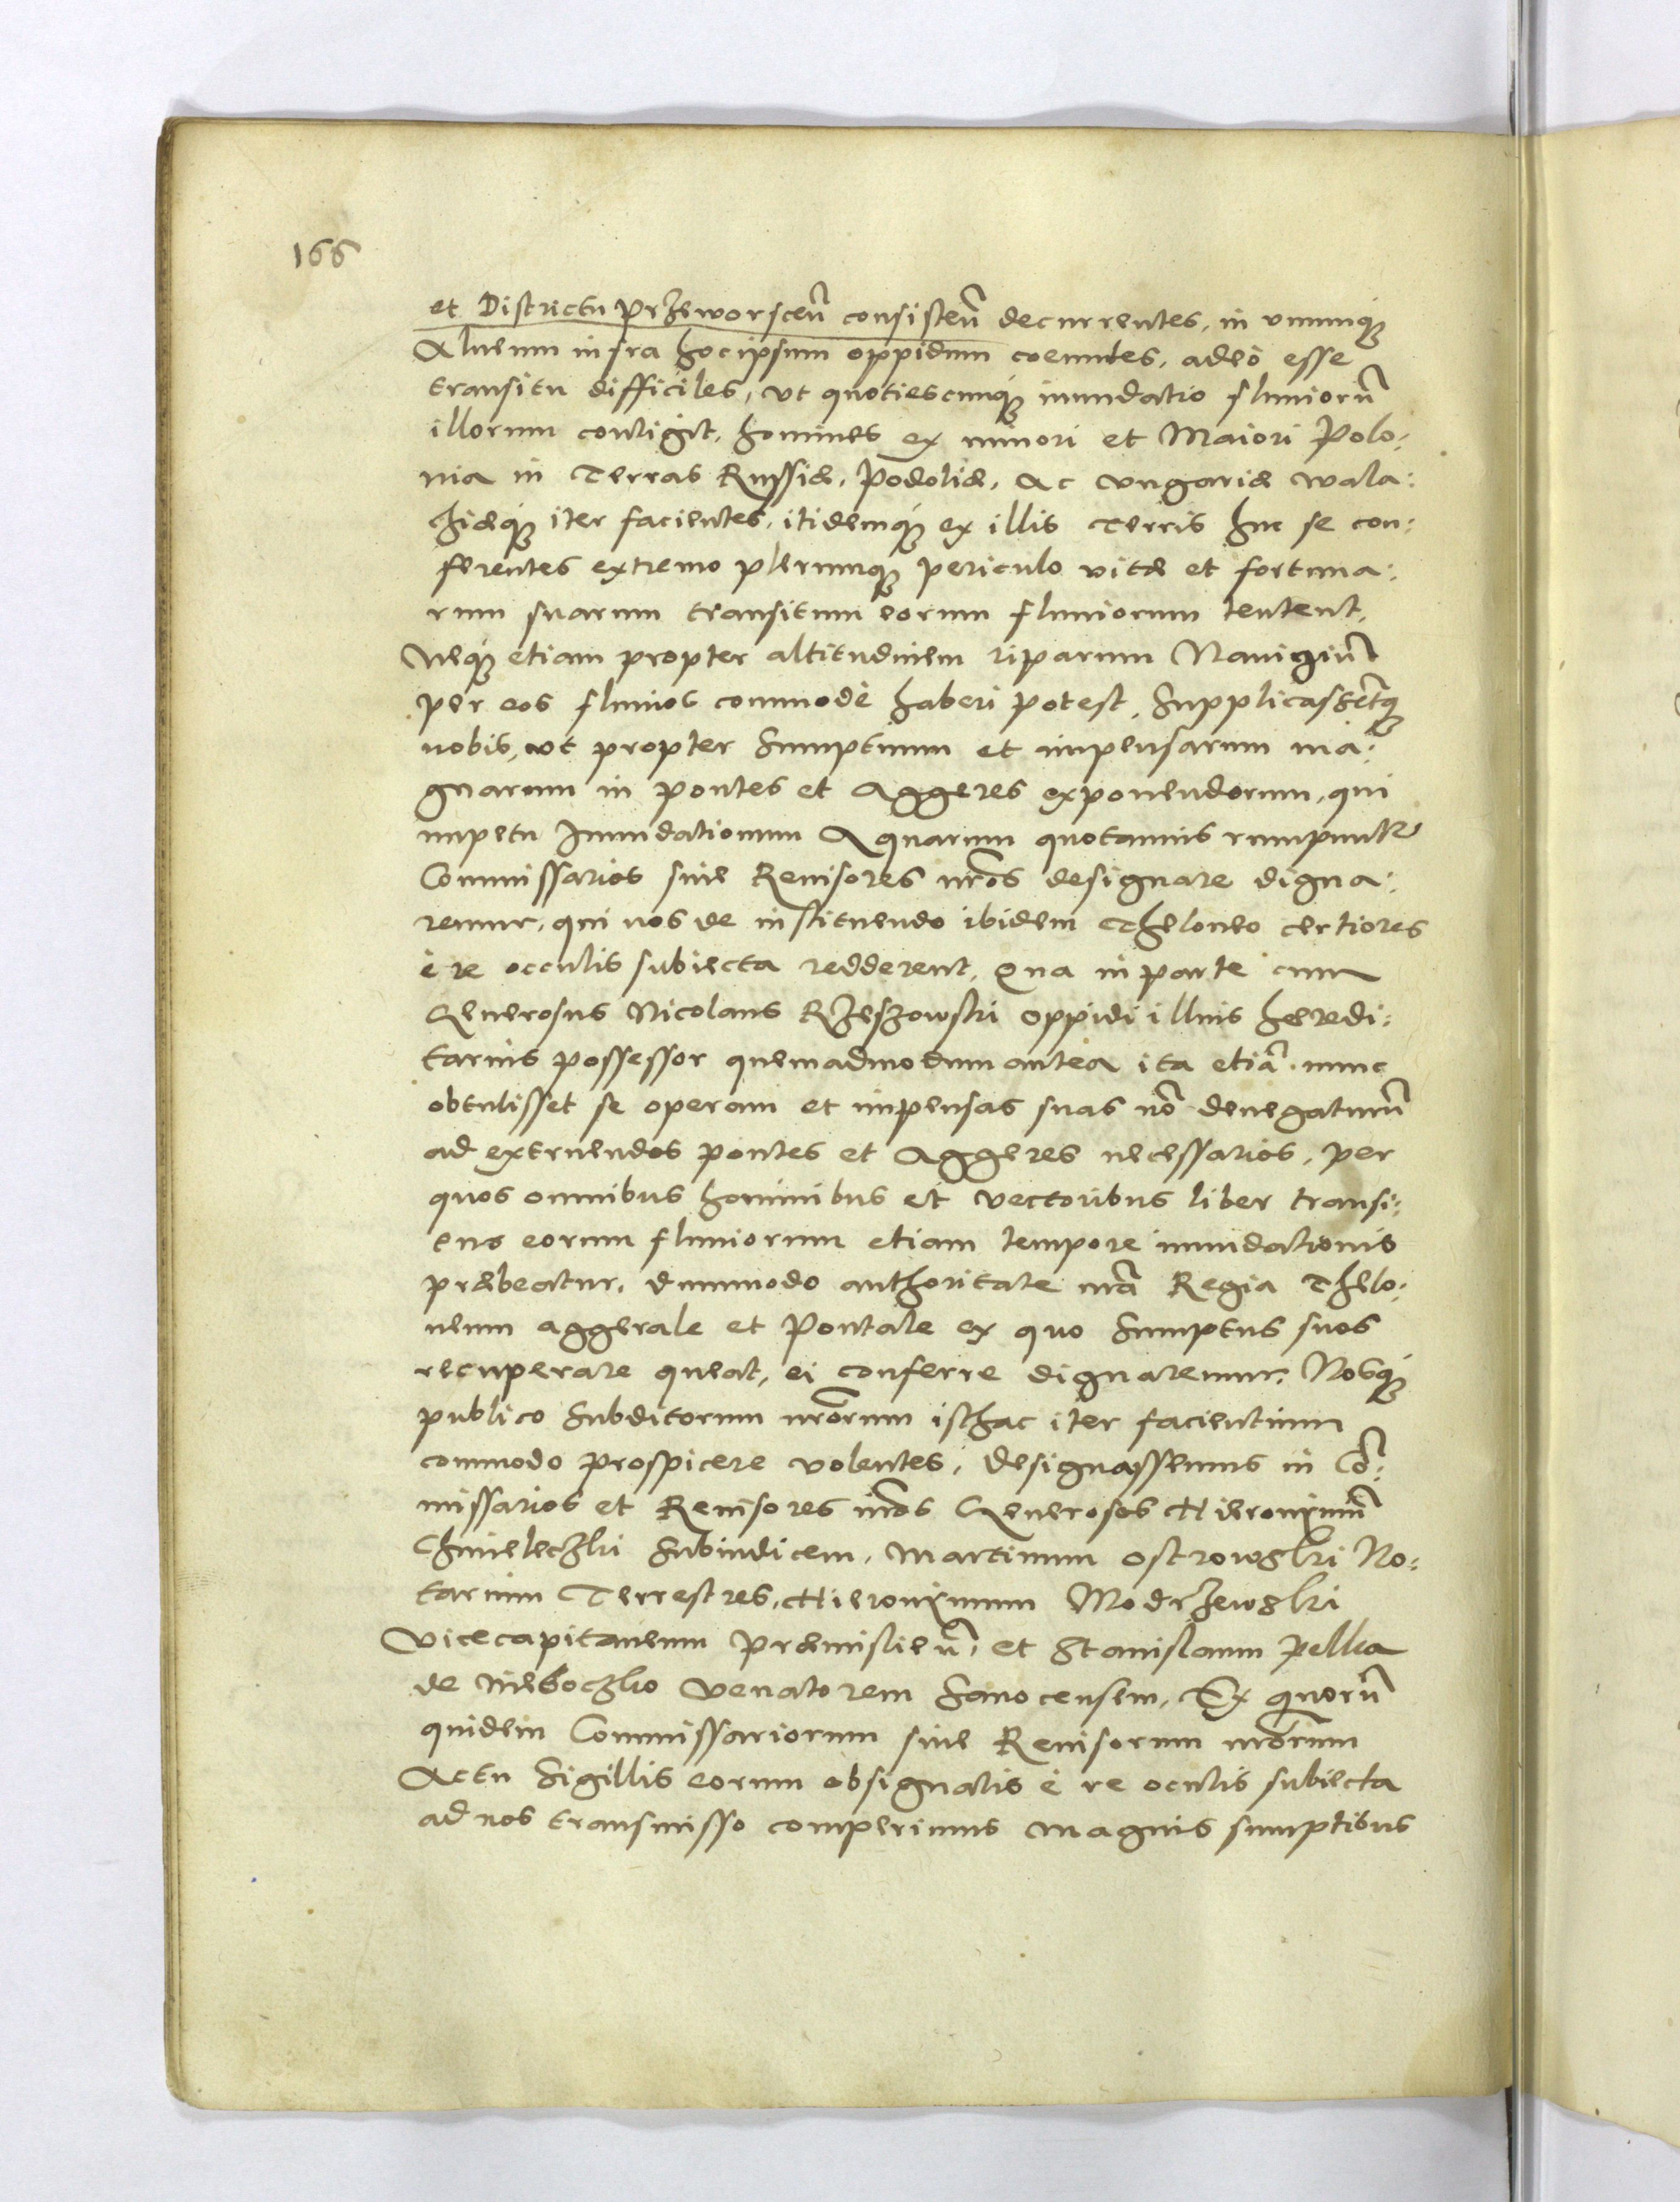 166
et Districtu Przeworsceñ consisteñ decurrentes, in vnumq́
Alueum infra hoc ipsum oppidum coeuntes, adeò esse
transitu difficiles, vt quotiescunq́ inundatio fluuiorũ
illorum contigit, homines ex minori et Maiori Polo:
nia in Terras Russiæ, Podoliæ, ac Vngariæ Wala:
chiæq́ iter facientes, itidemq́ ex illis Terris huc se con:
ferentes extremo plerumq́ periculo vitæ et fortuna:
rum suarum transitum eorum fluuiorum tentent,
Neq́ etiam propter altitudinem riparum Nauigiũ
per eos fluuios commodè haberi potest, Supplicassetq́
nobis, vt propter Sumptuum et impensarum ma:
gnarum in pontes et Aggeres exponendorum, qui
impetu Inundationum Aquarum quotannis rumpuntr
Commissarios siue Reuisores nr̃os designare digna:
remur, qui nos de instituendo ibidem Theloneo certiores
è re occulis subiecta redderent, Qua in parte cum
Generosus Nicolaus Rzeszowski oppidi illius hæredi:
tarius possessor quemadmodum antea ita etiã nunc
obtulisset se operam et impensas suas nõ denegaturũ
ad extruendos pontes et Aggeres necessarios, per
quos omnibus hominibus et vectoribus liber transi:
ens eorum fluuiorum etiam tempore inundationis
præbeatur, dummodo authoritate nr̃a Regia Thelo:
neum aggerale et Pontale ex quo Sumptus suos
recuperare queat, ei conferre dignaremur. Nosq́
publico Subditorum nr̃orum isthac iter facientium
commodo prospicere volentes, designassemus in Cõ:
missarios et Reuisores nr̃os Generosos Hieronimũ
Chmieleczki Subiudicem, Martinum Ostrowski No:
tarium Terrestres, Hieronimum Modrzewski
Vicecapitaneum Præmislieñ, et Stanislaum Pelka
de Nieboczko Venatorem Sanocensem, Ex quorũ
quidem Commissariorum siue Reuisorum nr̃orum
Actu Sigillis eorum obsignatis è re oculis subiecta
ad nos transmisso comperimus magnis sumptibus